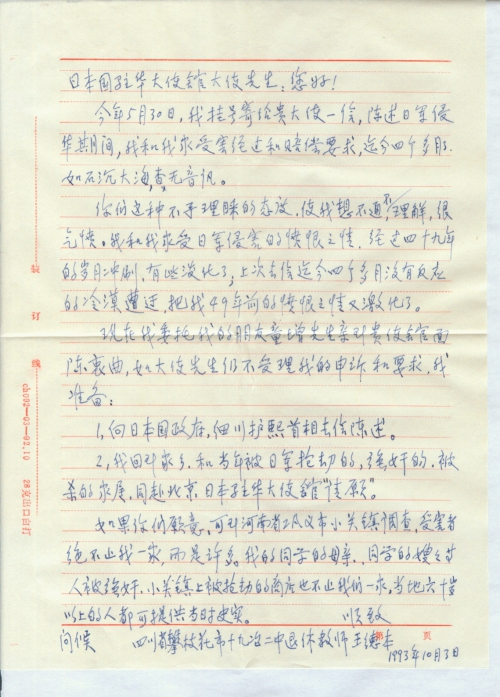 日本国驻华大使馆大使先生:您好!
今年5月30日,我挂号寄给贵大使一信,陈述日军侵
华期间,我和我家受害经过和赔偿要求,迄今四个多月了.
如石沉大海,杳无音讯。
你们这种不予理睬的态度,使我想不通,不理解,很
气愤。我和我家受日军侵害的愤恨之情,经过四十九年
的岁月冲刷,有些淡化了,上次去信迄今四个多月没有反应
的冷漠遭遇,把我49年前的愤恨之情又激化了。
现在我委托我的朋友童增先生亲到贵使馆面
陈衷曲,如大使先生仍不受理我的申诉和要求,我
准备:
1,向日本国政府,细川护熙首相去信陈述。
2,我回到家乡,和当年被日军抢劫的,强奸的,被
杀的家属,同赴北京日本驻华大使馆"请愿"。
如果你们愿意,可到河南省巩义市小关镇调查,受害者
绝不止我一家,而是许多。我的同学的母亲、同学的嫂等
人被强奸,小关镇上被抢劫的商店也不止我们一家,当地六十岁
以上的人都可提供当时史实。 顺致
问候 四川省攀枝花市十九冶二中退休教师王德
第 页
1993年10月3日
装
订
线
cb092—03—92.10 28支出口白打